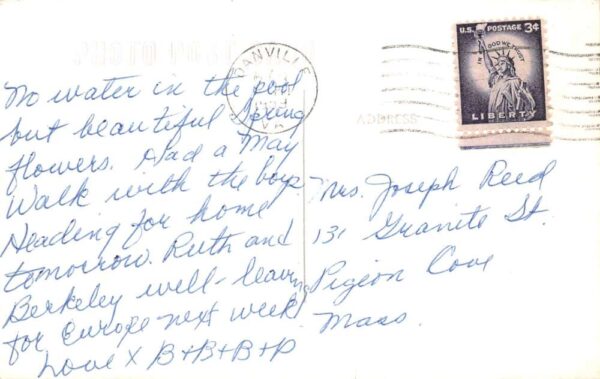 No water in the pool
but beautiful Spring
flowers. Had a May
Walk with the boys
Heading for home
tomorrow. Ruth and
Berkeley well - leaving
for Europe next week
Love X B+B+B+P
DANVILLE
U.S. POSTAGE 3¢
IN GOD WE TRUST
LIBERTY
ADDRESS
Mrs. Joseph Reed
131 Granite St.
Pigeon Cove
Mass.